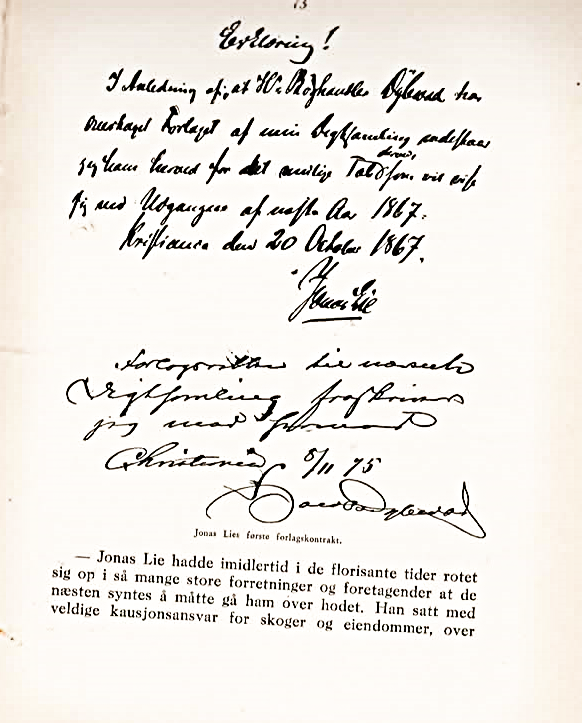 75
Erklæring!
I Anledning af, at Hr. Boghandler Dybwad har
overtaget Forlaget af min Digtsamling indestaar
jeg ham herved for det mulige Tab, som derved vil vise
sig ved Udgangen af næste Aar 1867.
Kristiania den 20 October 1867.
Jonas Lie
Forlagsretten til nævnte
Digtsamling fraskriver
jeg mig herved
Christiania 8/11 75
Jacob Dybwad
Jonas Lies første forlagskontrakt.
— Jonas Lie hadde imidlertid i de florisante tider rotet
sig op i så mange store forretninger og foretagender at de
næsten syntes å måtte gå ham over hodet. Han satt med
veldige kausjonsansvar for skoger og eiendommer, over